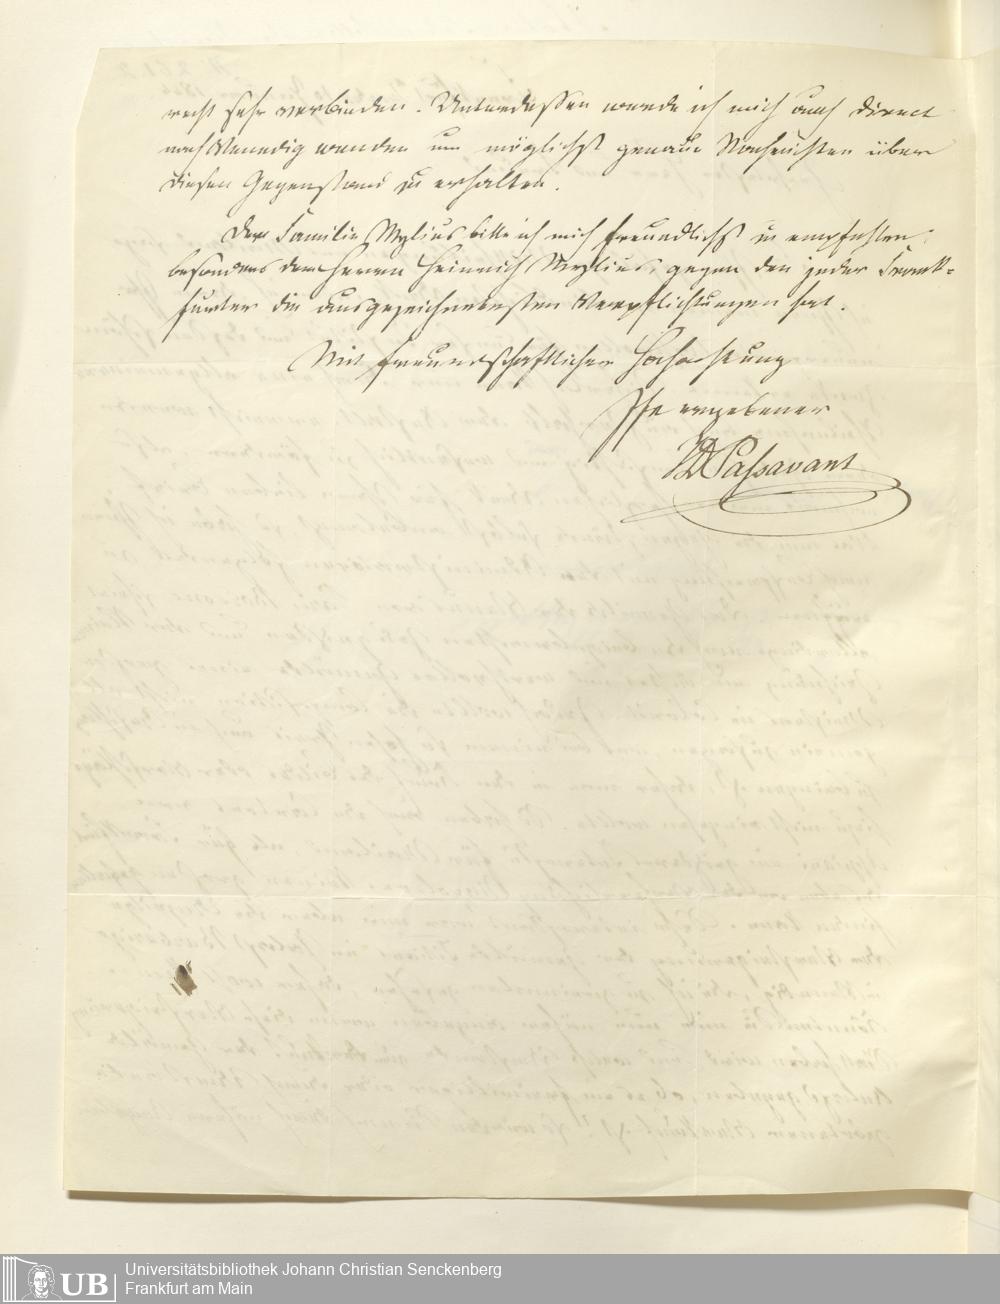 recht sehr verbinden. Unterdessen werde ich mich auch direct
nach Venedig wenden um möglichst genaue Nachrichten über
diesen Gegenstand zu erhalten.
Der Familie Mylius bitte ich mich freundlichst zu empfehlen,
besonders dem Herrn Heinrich Mylius, gegen den jeder Frank-
furter die ausgezeichnetesten Verpflichtungen hat.
Mit freundschaftlicher Hochachtung
Ihr ergebener
JD Passavant
UB
Universitätsbibliothek Johann Christian Senckenberg
Frankfurt am Main